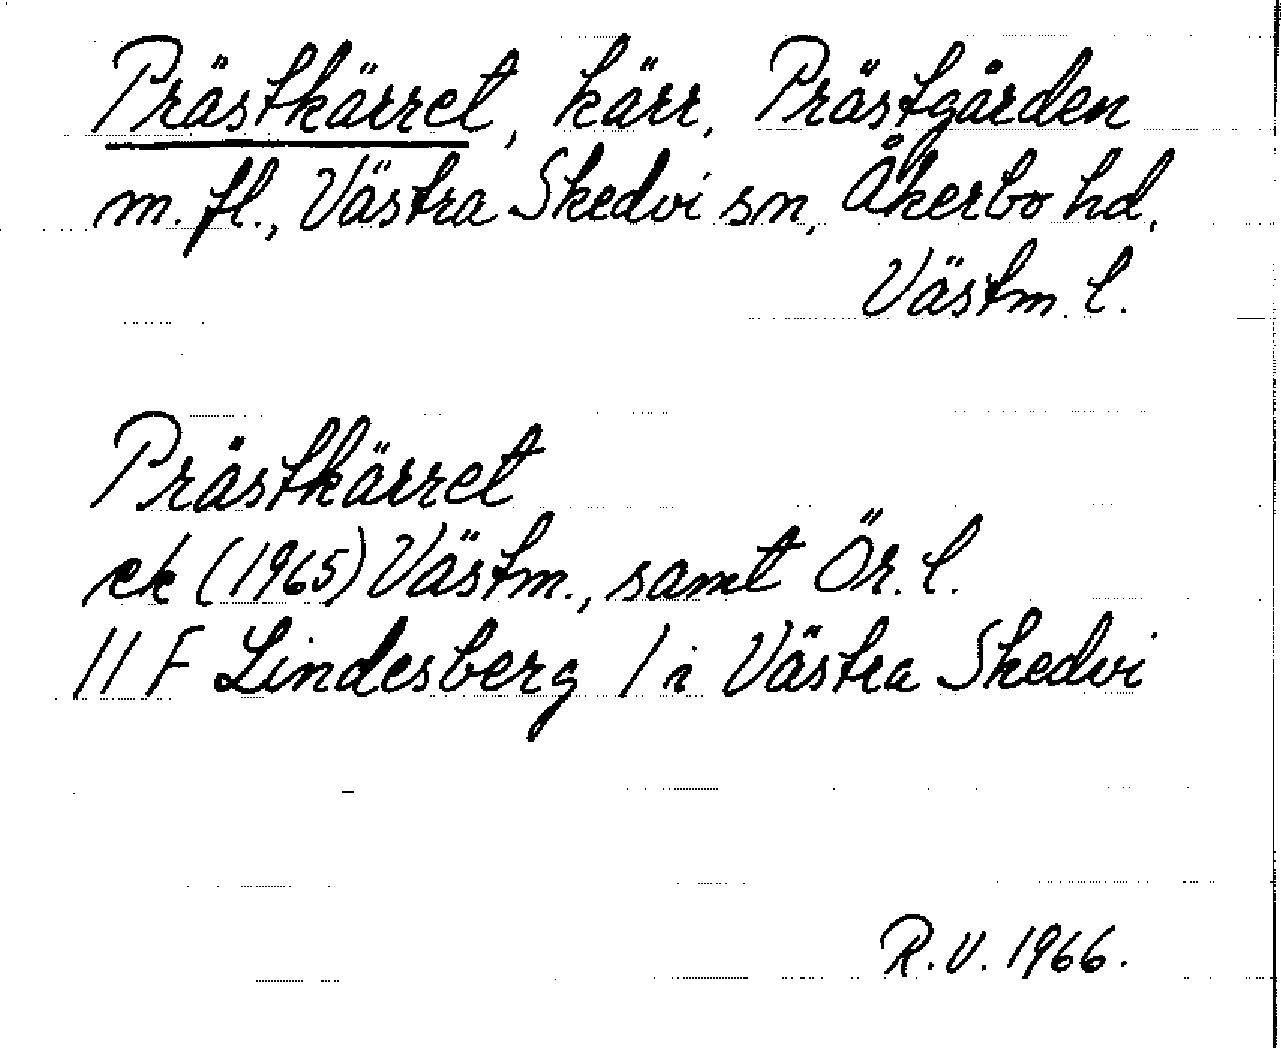 Prästkärret, kärr, Prästgården
m. fl., Västra Skedvi sn, Åkerbo hd,
Västm. l.
Prästkärret
ek (1965) Västm., samt Ör. l.
11 F Lindesberg / i Västra Skedvi
R.V. 1966.